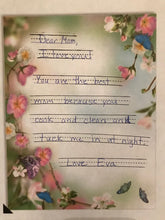 Dear Mom,
I love you!
You are the best
mom because you
cook and clean and
tuck me in at night.
Love Eva